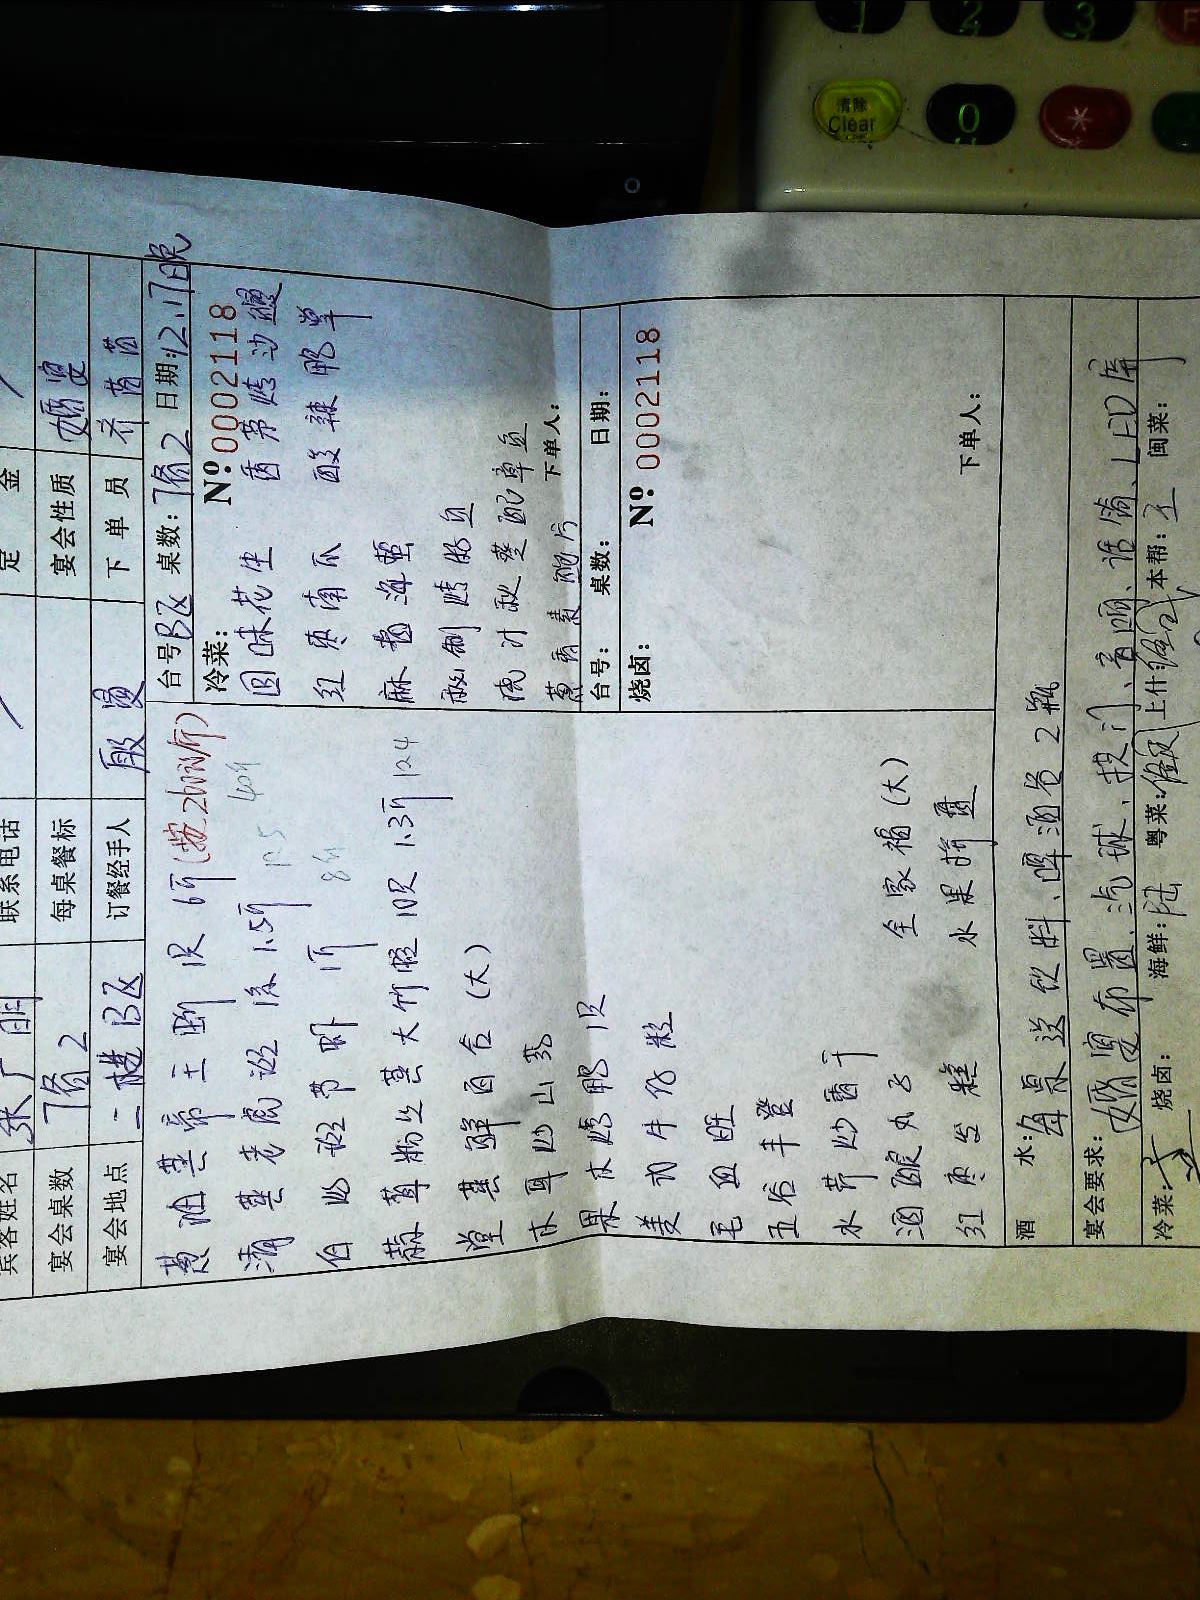 宾客姓名 张广明 联系电话 定 金
宴会桌数 7备2 每桌餐标 宴会性质 婚宴
宴会地点 二楼B区 订餐经手人 殷 下 单 员 乔茵茵
葱油基帝王蟹1只 6斤(按260元/斤)
清蒸老虎斑1条 1.5斤
白灼斑节虾 1斤
蒜茸粉丝蒸大竹蛏10只 1.3斤 124
堂蒸鲜百合(大)
木耳炒山药
果木烤鸭1只
美国牛仔粒
毛血旺
五谷丰登
水芹炒香干
酒酿丸子 全家福(大)
红枣发糕 水果拼盘
台号B区 桌数:7备2 日期:12.17晚
冷菜: Nº 0002118
回味花生 香茅烤边鳗
红枣南瓜 酸辣鸭掌
麻酱海蜇
秘制烤肠鱼
浇汁秋葵配章鱼
葱香素鲍片 下单人:
台号: 桌数: 日期:
烧卤: Nº 0002118
下单人:
酒 水: 每桌送饮料、啤酒各2瓶
宴会要求: 婚宴布置、汽球、拱门、音响、话筒、LED屏
冷菜: 烧卤: 海鲜:陆 粤菜: 上什: 本帮: 闽菜:
1 2 3
清除
Clear 0 *